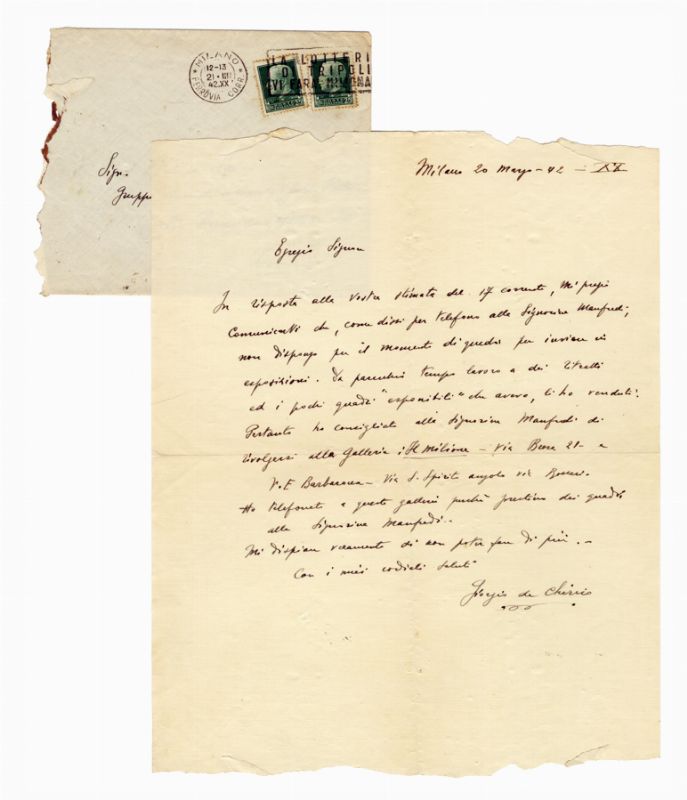 MILANO
12-13
21·III
42.XX
FERROVIA CORR.
LA LOTTERI
DI TRIPOLI
Sign.
Gruppo
Milano 20 Marzo - 42 - XX
Egregio Signore
In risposta alla vostra stimata del 17 corrente, mi pregio
comunicarVi che, come dissi per telefono alla Signorina Manfredi,
non dispongo per il momento di quadri per inviare in
esposizioni. Da parecchio tempo lavoro a dei ritratti
ed i pochi quadri "esponibili" che avevo, li ho venduti.
Pertanto ho consigliato alla Signorina Manfredi di
rivolgersi alla Galleria: Il Milione - Via Brera 21 - a
V.E. Barbaroux - Via S. Spirito angolo via
Ho telefonato a queste gallerie perché prestino dei quadri
alla Signorina Manfredi.
Mi dispiace veramente di non poter fare di più. -
Con i miei cordiali saluti
Giorgio de Chirico